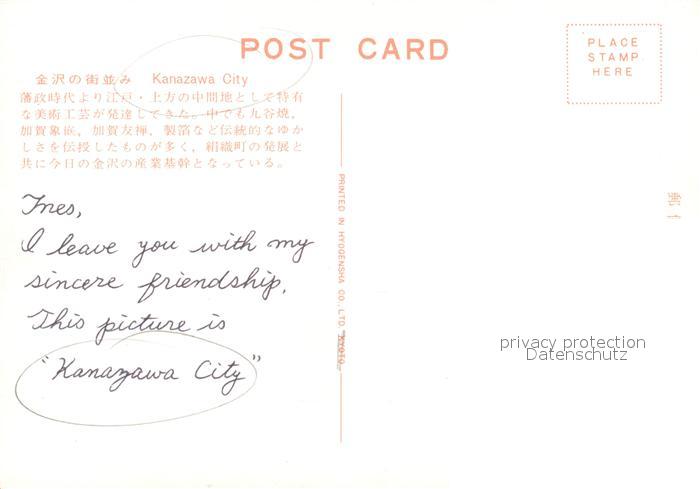 POST CARD
PLACE
STAMP
HERE
金沢の街並み Kanazawa City
藩政時代より江戸・上方の中間地として特有
な美術工芸が発達してきた。中でも九谷焼，
加賀象嵌，加賀友禅，製箔など伝統的なゆか
しさを伝授したものが多く，絹織町の発展と
共に今日の金沢の産業基幹となっている。
Ines,
I leave you with my
sincere friendship.
This picture is
"Kanazawa City"
PRINTED IN HYOGENSHA CO., LTD. KYOTO
privacy protection
Datenschutz